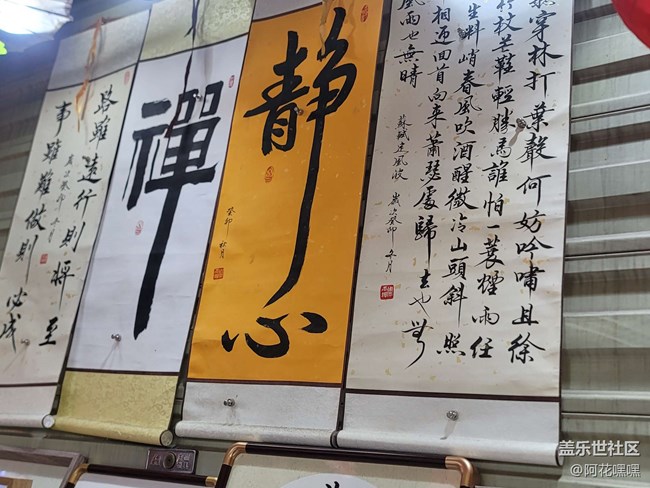 穿林打葉聲何妨吟嘯且徐
竹杖芒鞋輕勝馬誰怕一蓑煙雨任
生料峭春風吹酒醒微冷山頭斜照
相迎回首向來蕭瑟處歸去也無
風雨也無晴
蘇軾定風波 歲次癸卯
靜心
癸卯秋月
禪
路雖遠行則將至
事雖難做則必成
歲次癸卯
盖乐世社区
@阿花嘿嘿